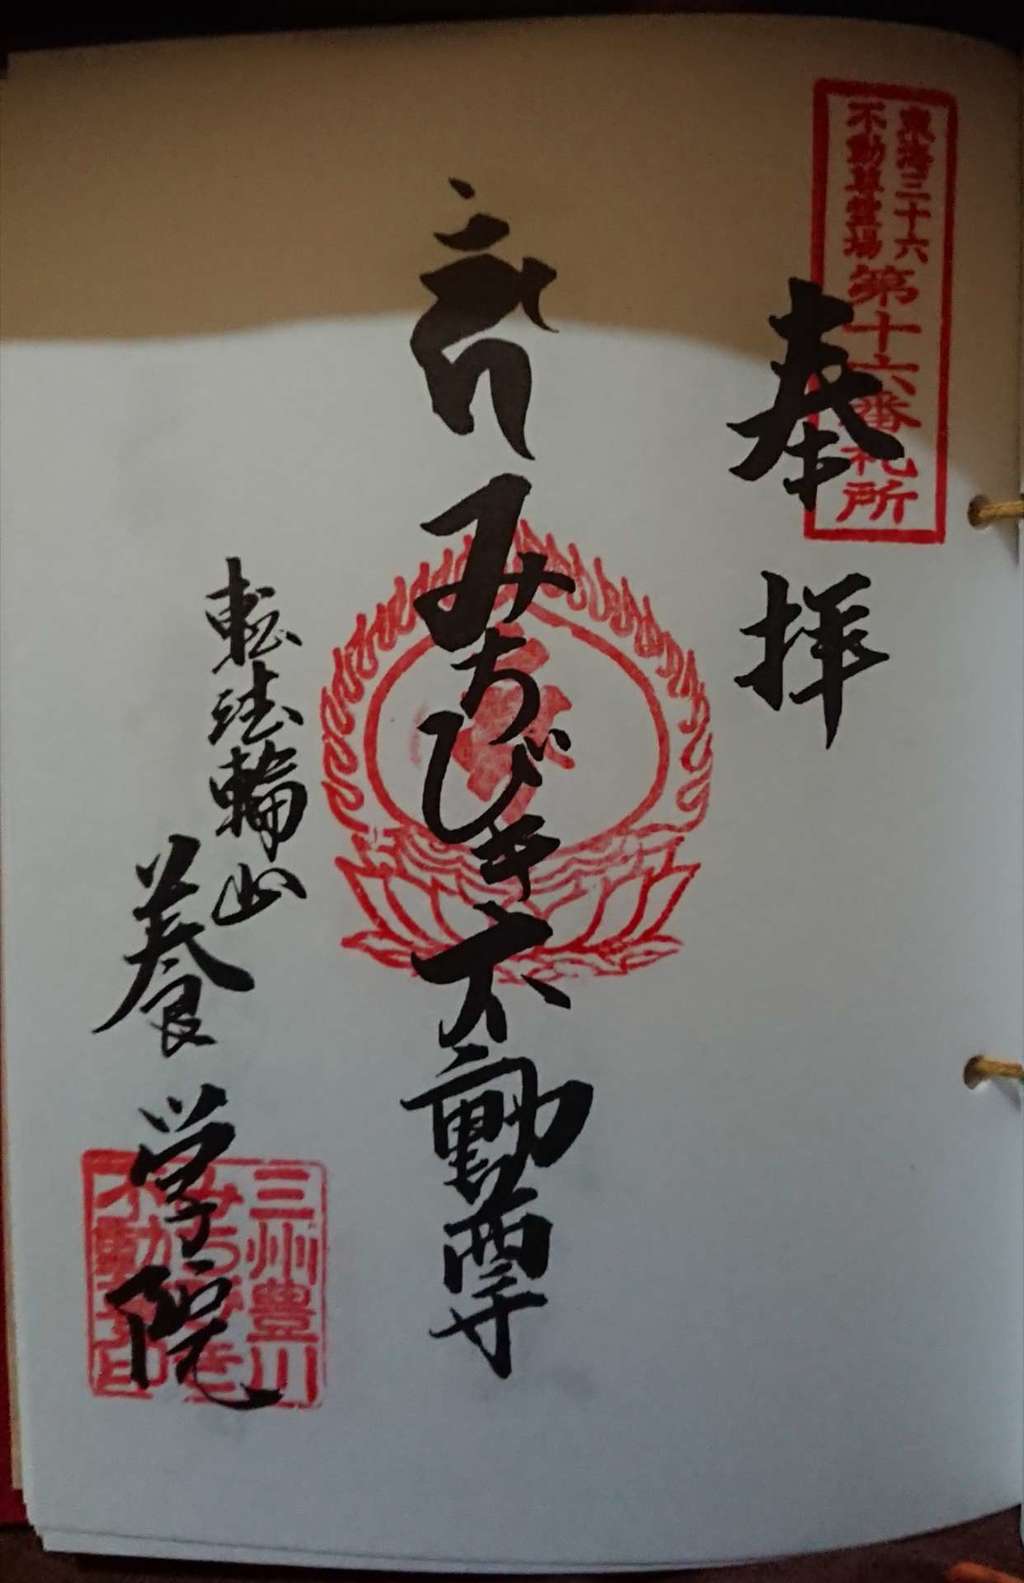 東海三十六
不動尊霊場
第十六番札所
奉拝
みちびき不動尊
転法輪山
養学院
三州豊川
みちびき
不動尊印